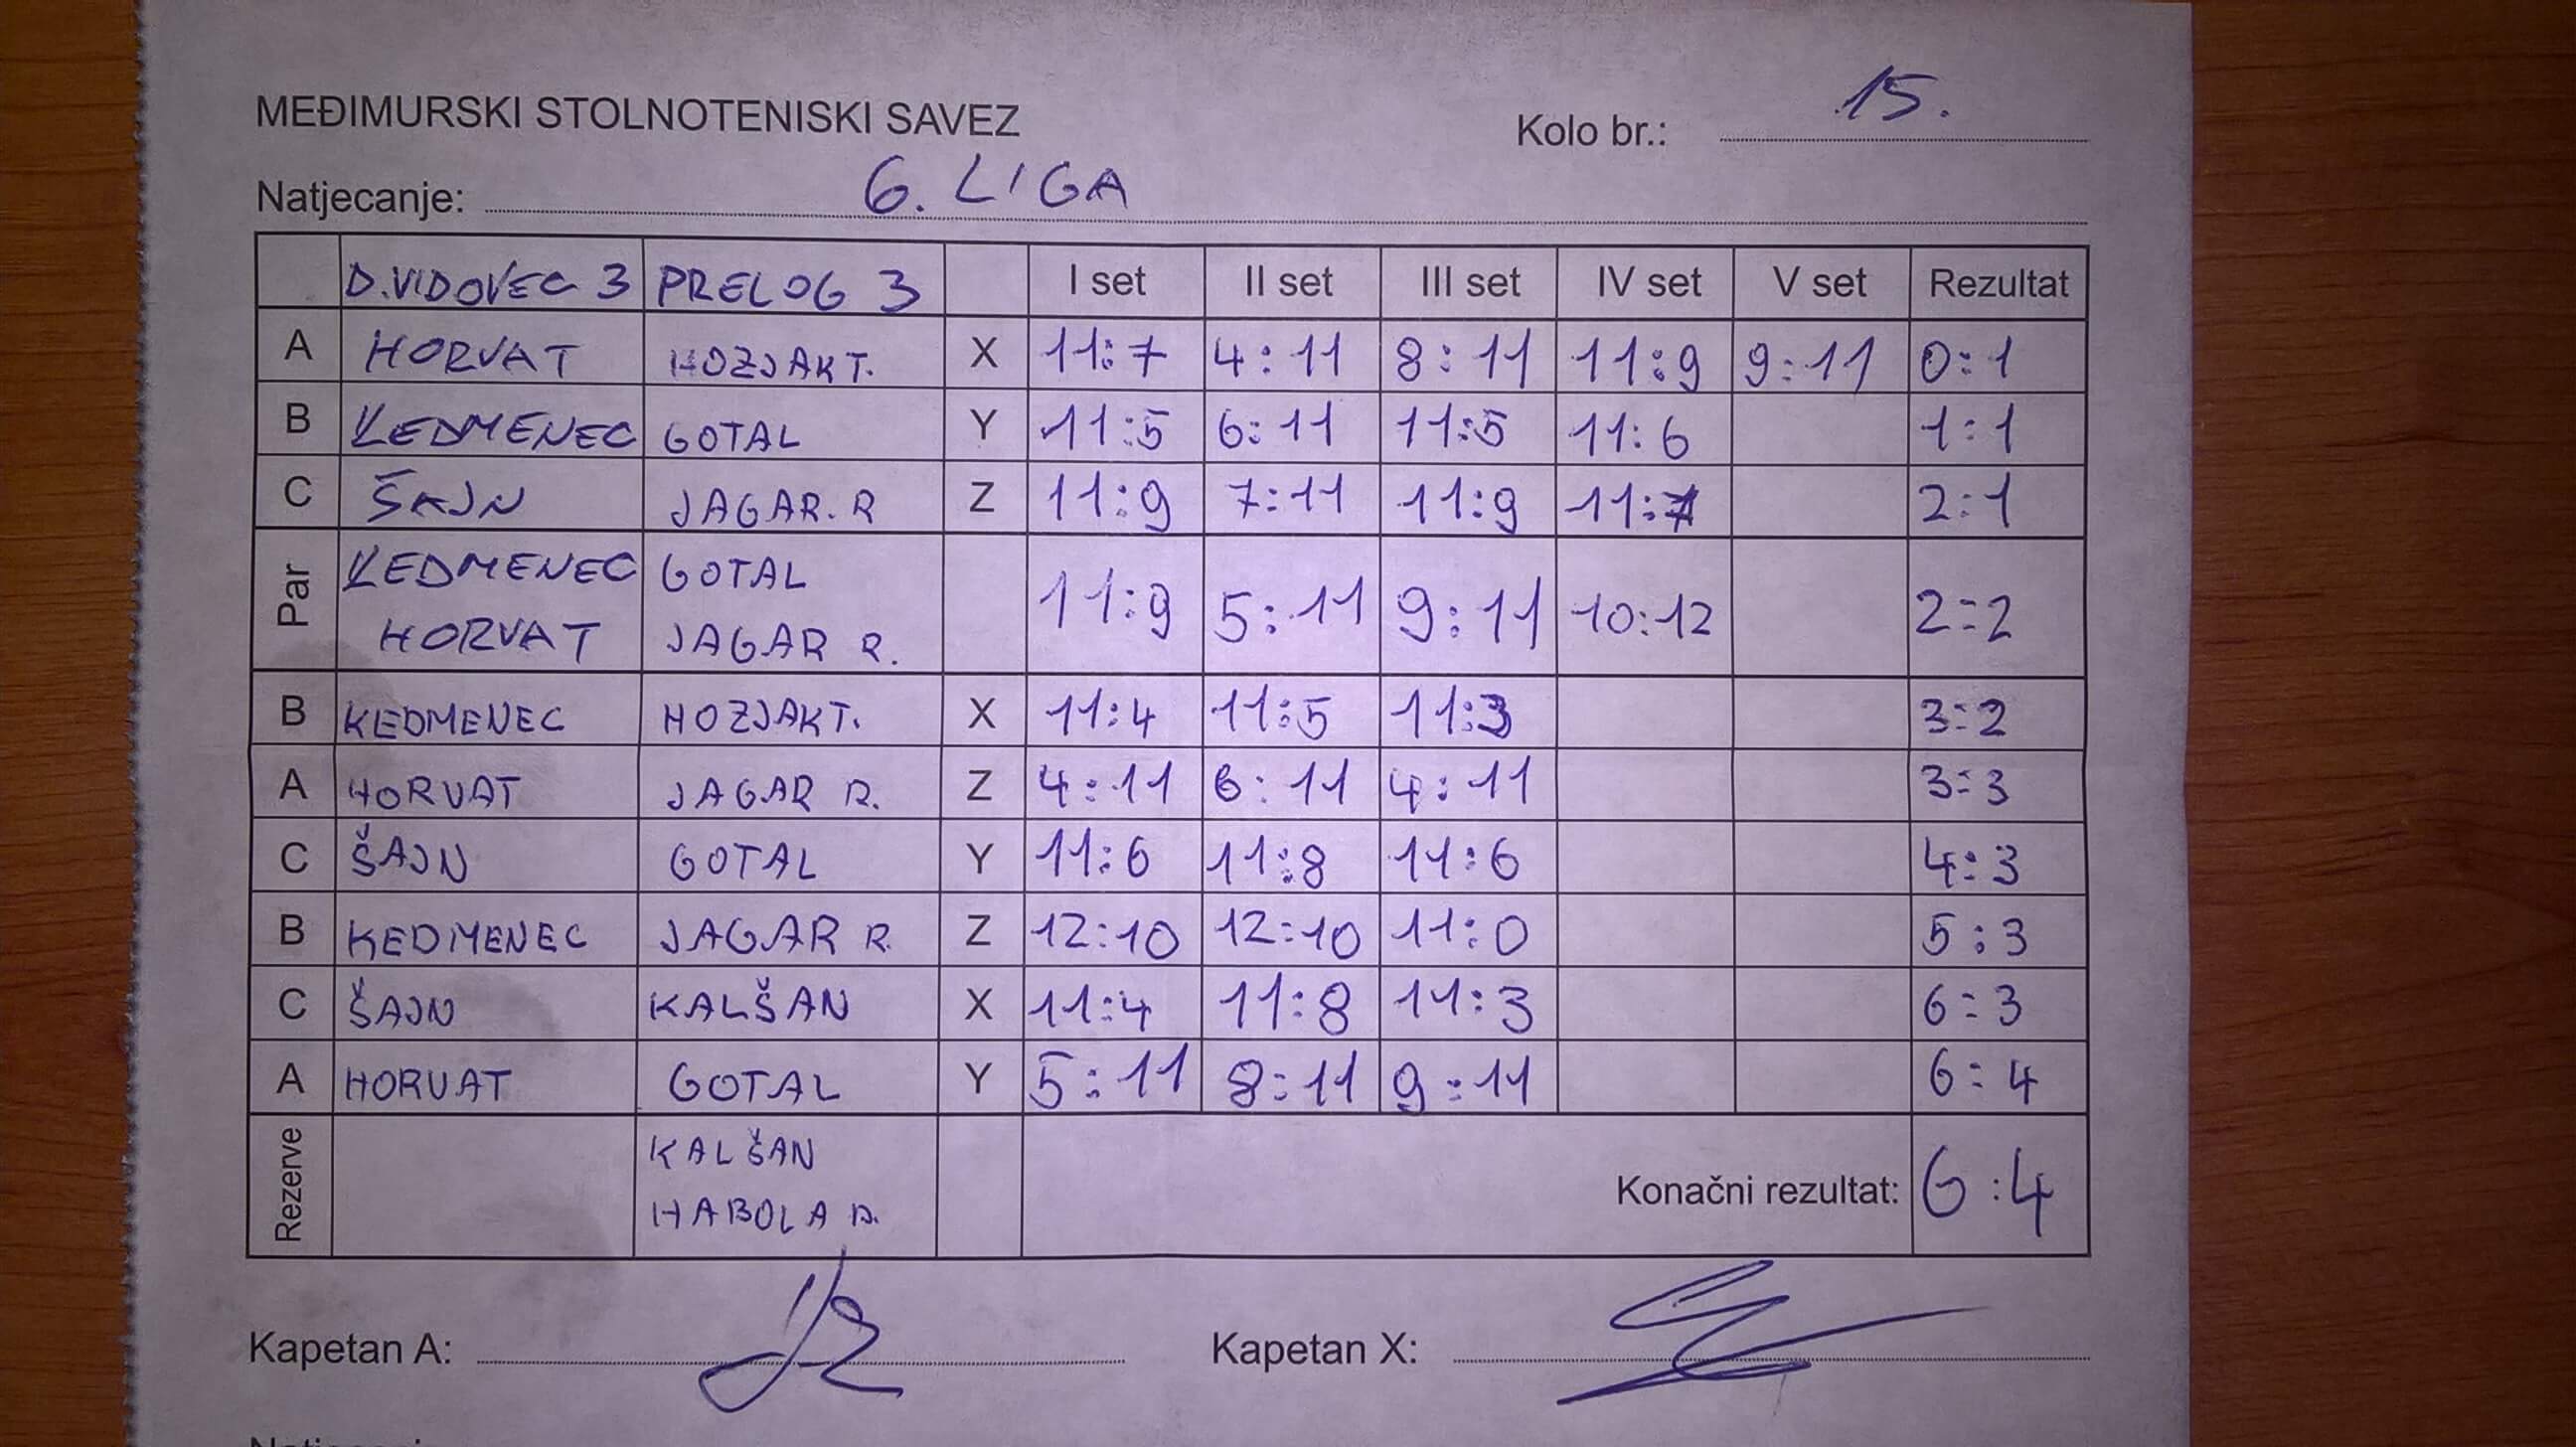 MEĐIMURSKI STOLNOTENISKI SAVEZ
Kolo br.: 15.
Natjecanje: 6. LIGA
D.VIDOVEC 3 PRELOG 3 I set II set III set IV set V set Rezultat
A HORVAT HOZJAK T. X 11:7 4:11 8:11 11:9 9:11 0:1
B KEDMENEC GOTAL Y 11:5 6:11 11:5 11:6 1:1
C ŠAJN JAGAR. R Z 11:9 7:11 11:9 11:7 2:1
Par KEDMENEC GOTAL 11:9 5:11 9:11 10:12 2:2
HORVAT JAGAR R.
B KEDMENEC HOZJAK T. X 11:4 11:5 11:3 3:2
A HORVAT JAGAR R. Z 4:11 6:11 4:11 3:3
C ŠAJN GOTAL Y 11:6 11:8 11:6 4:3
B KEDMENEC JAGAR R. Z 12:10 12:10 11:0 5:3
C ŠAJN KALŠAN X 11:4 11:8 11:3 6:3
A HORVAT GOTAL Y 5:11 8:11 9:11 6:4
Rezerve KALŠAN
HABOLA
Konačni rezultat: 6:4
Kapetan A: Kapetan X: